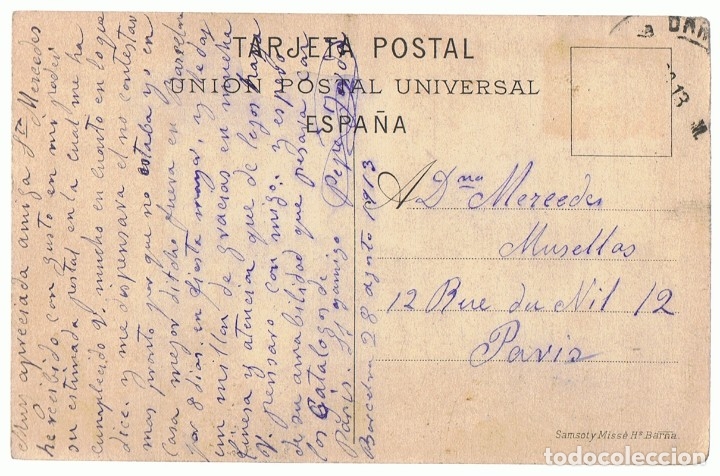 TARJETA POSTAL
UNIÓN POSTAL UNIVERSAL
ESPAÑA
BAR
13 M
A Dna Mercedes
Musellas
12 Rue du Nil 12
Paris
Samsot y Missé Hs. Barna.
Muy apreciada amiga Sta Mercedes
he recibido con gusto en mi poder
su estimada postal en la cual me ha
cumplecido q. mucho en cuanto en lo que
dice. y me dispensara el no contestar
mas pronto por que no estaba yo en
Casa mejor dicho fuera en Barcelona
por 8 dias en fiesta mayor, y le doy
un millon de gracias en mucha
finesa y atencion que de lejos haya
V. pensaro con migo. y espero
de su amabilidad que pasara con
los Catalogos de
Paris. Su amigo
Pepe
Barcelona 28 agosto 1913
todocoleccion